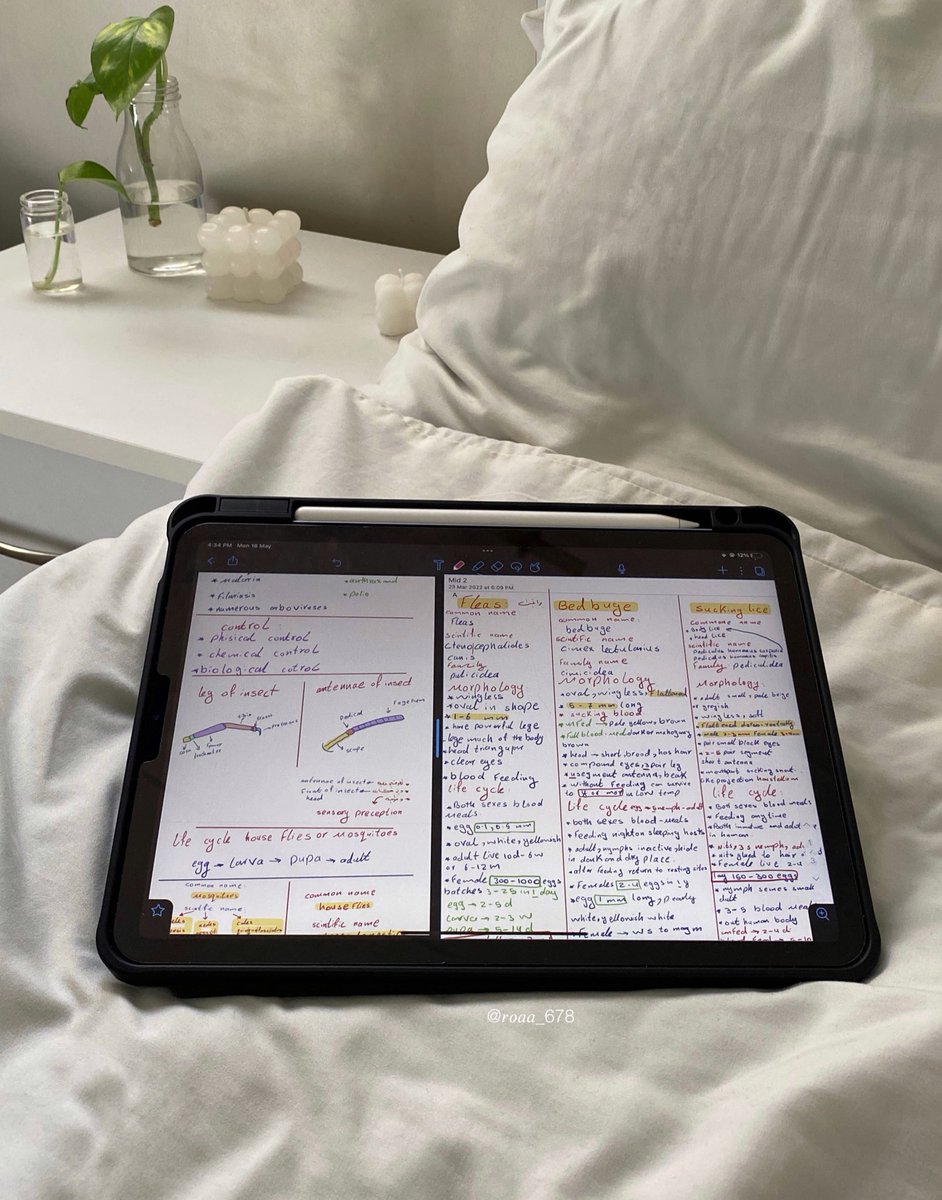 4:34 PM Mon 16 May
12%
* malaria
* Filariasis
* numerous arboviruses
* polio
control:
* Phisical control
* chemical control
* biological cotrol
leg of insect
coxa
Femur
antennae of insect
pedical
scape
antennae of insect
Front of insect
head
sensory preception
life cycle house flies or mosquitoes
egg → larva → pupa → adult
common name:
mosquitoes
scintfic name
aedes
common name
house flies
scintific name
Mid 2
23 Mar 2022 at 6:09 PM
Fleas:
common name
fleas
scintific name
ctenocephalides
canis
family
pulicidea
Morphology
* wingless
* oval in shape
* 1-6 mm
* have powerful legs
* head triangular
* clear eyes
* blood Feeding
life cycle:
* Both sexes blood
meals
* egg 0.1, 0.5 mm
* oval, white, yellowish
* adult live 10d-6w
or 6-12m
* Female 300-1000 eggs
batches 3-25 in 1 day
egg → 2-5 d
larva → 2-3 w
pupa → 5-14d
Bed buge
common name:
bed buge
scintific name
cimex lectularius
Family name
cimicidea
Morphology
* oval, wingless, flattened
* 5-7 mm long
* sucking blood
* unfed → pale yellow, brown
* Full blood → darker mahogany
brown
* head → short, broad, has hair
* compound eyes, 3 pair leg
* 4 segment antenna, beak
* without Feeding can survive
to in low temp
life cycle egg → nymph → adult
* both sexes blood-meals
* Feeding night on sleeping hosts
* adult, nymphs inactive, hide
in dark and dry place.
* after feeding return to resting sites
* Females 2-4 eggs in 1 y
* egg 1 mm long, pearly
white, yellowish white
Sucking lice
commone name
* Body lice
* head lice
scintific name
Pediculus humanus
Pediculus humanus capitis
Family: pediculidea
Morphology:
* adult small, pale beige
or greyish
* wingless, soft
* pair small black eyes
short antenna
life cycle:
* Both sexes blood meals
* Feeding any time
in human.
* nits glued to hair
* Female live
150-300 eggs
* nymph sames small
adult
* 3-5 blood meals
* out human body
unfed → 2-4 d
@roaa_678